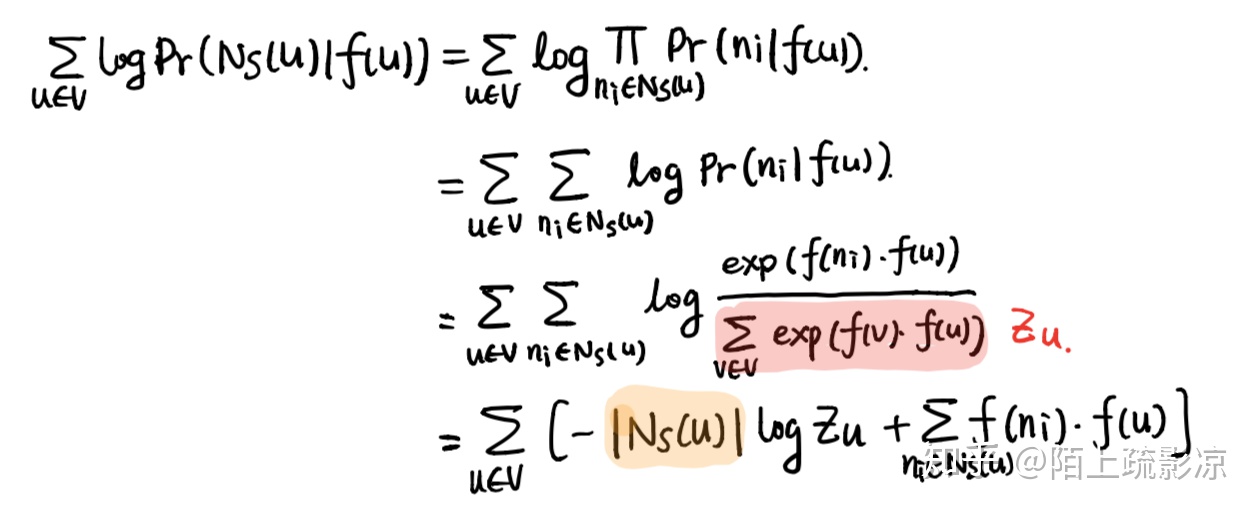 ∑_{u∈V} log Pr(N_S(u)|f(u)) = ∑_{u∈V} log ∏_{n_i∈N_S(u)} Pr(n_i|f(u)).
= ∑_{u∈V} ∑_{n_i∈N_S(u)} log Pr(n_i|f(u)).
= ∑_{u∈V} ∑_{n_i∈N_S(u)} log \frac{exp(f(n_i)·f(u))}{∑_{v∈V} exp(f(v)·f(u))} Z_u.
= ∑_{u∈V} [-|N_S(u)| log Z_u + ∑_{n_i∈N_S(u)} f(n_i)·f(u)]
知乎 @陌上疏影凉